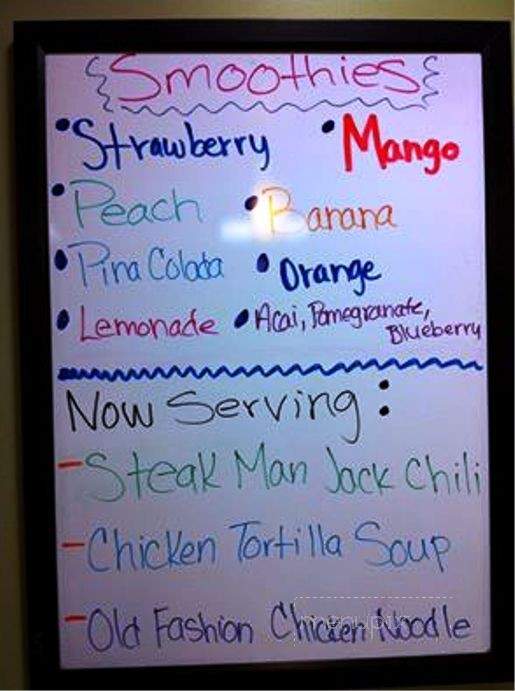 Smoothies
• Strawberry • Mango
• Peach • Banana
• Pina Colada • Orange
• Lemonade • Acai, Pomegranate,
Blueberry
Now Serving:
- Steak Man Jack Chili
- Chicken Tortilla Soup
- Old Fashion Chicken Noodle
menupix